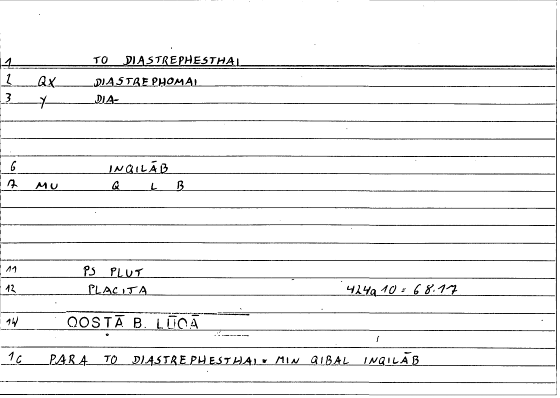 1 TO DIASTREPHESTHAI
2 QX DIASTREPHOMAI
3 Y DIA-
6 INQILĀB
7 MU Q L B
11 PS PLUT
12 PLACITA 424a10 = 68.17
14 QOSṬĀ B. LŪQĀ
1c PARA TO DIASTREPHESTHAI = MIN QIBAL INQILĀB